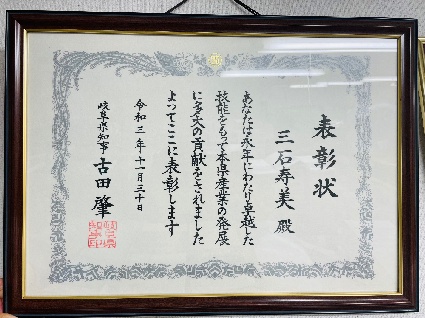 表彰状
三石寿美殿
あなたは永年にわたり卓越した
技能をもって本県産業の発展
に多大の貢献をされました
よってここに表彰します
令和三年十一月三十日
岐阜県知事 古田肇